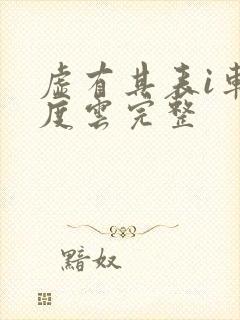 虛有其表i車
度雲完整
黯奴